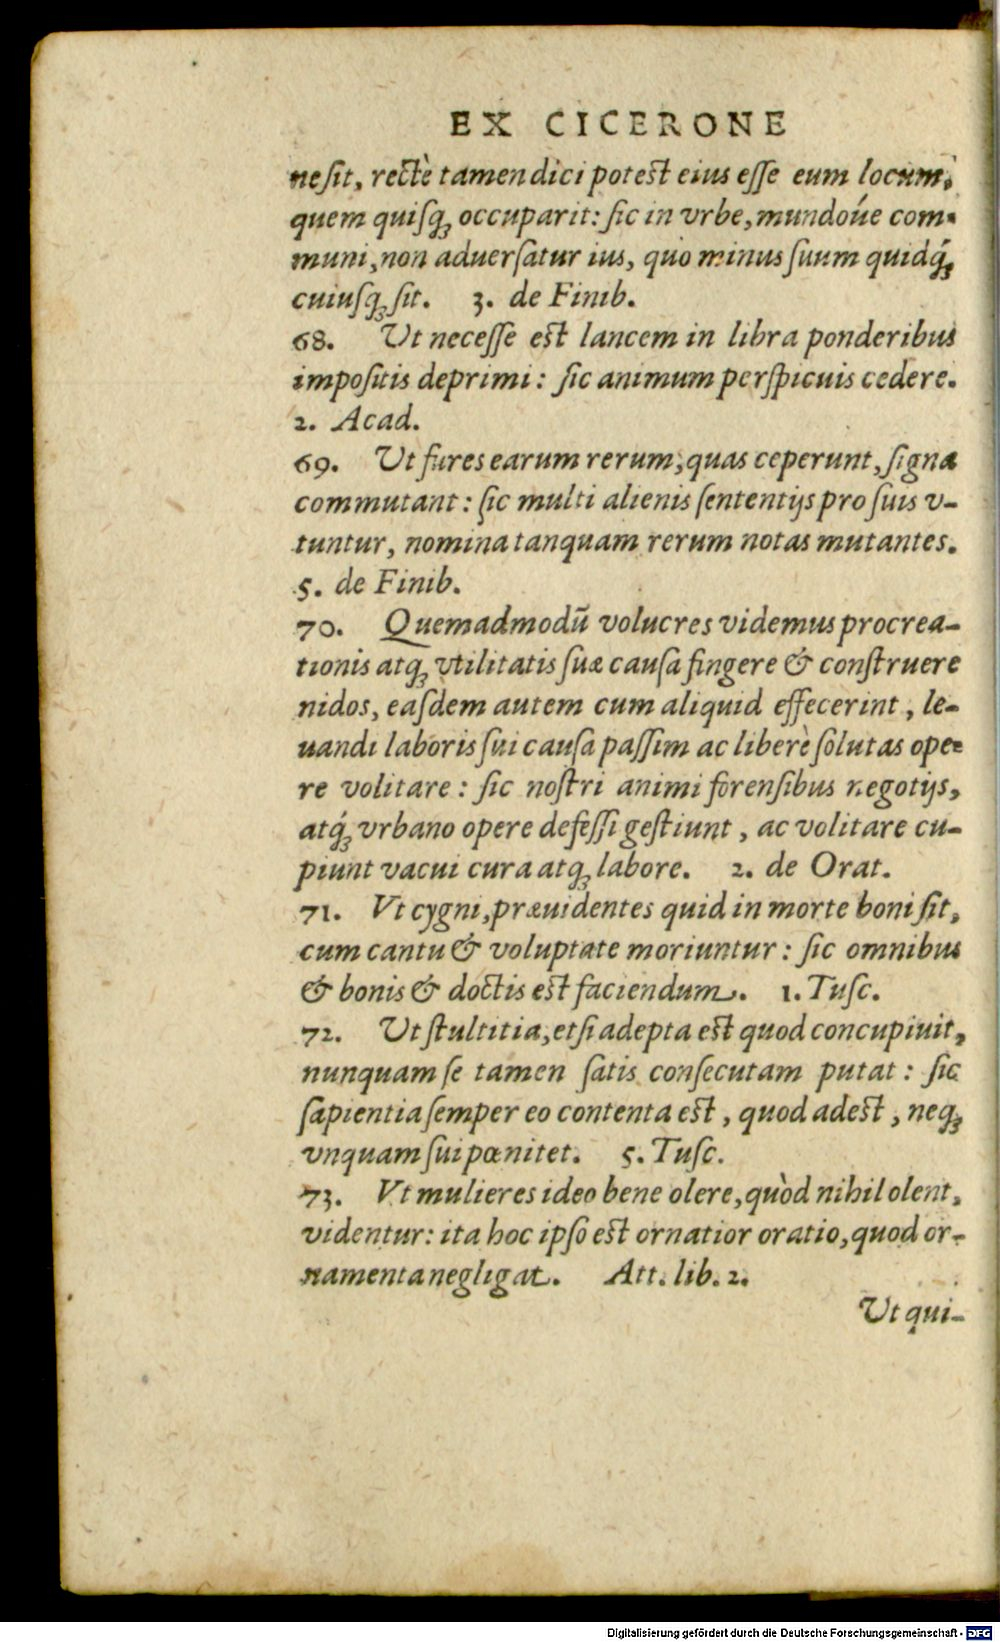 EX CICERONE
ne ſit, rectè tamen dici poteſt eius eſſe eum locum,
quem quiſq; occuparit: ſic in vrbe, mundoúe com-
muni, non aduerſatur ius, quo minus ſuum quidq́;
cuiuſq; ſit. 3. de Finib.
68. Ut neceſſe eſt lancem in libra ponderibus
impoſitis deprimi: ſic animum perſpicuis cedere.
2. Acad.
69. Ut fures earum rerum, quas ceperunt, ſigna
commutant: ſic multi alienis ſententijs pro ſuis v-
tuntur, nomina tanquam rerum notas mutantes.
5. de Finib.
70. Quemadmodũ volucres videmus procrea-
tionis atq; vtilitatis ſuæ cauſa fingere & conſtruere
nidos, eaſdem autem cum aliquid effecerint, le-
uandi laboris ſui cauſa paſſim ac liberè ſolutas ope-
re volitare: ſic noſtri animi forenſibus negotijs,
atq́; vrbano opere defeſſi geſtiunt, ac volitare cu-
piunt vacui cura atq; labore. 2. de Orat.
71. Vt cygni, præuidentes quid in morte boni ſit,
cum cantu & voluptate moriuntur: ſic omnibus
& bonis & doctis eſt faciendum. 1. Tuſc.
72. Ut ſtultitia, etſi adepta eſt quod concupiuit,
nunquam ſe tamen ſatis conſecutam putat: ſic
ſapientia ſemper eo contenta eſt, quod adeſt, neq;
vnquam ſui pœnitet. 5. Tuſc.
73. Vt mulieres ideo bene olere, quòd nihil olent,
videntur: ita hoc ipſo eſt ornatior oratio, quod or-
namenta negligat. Att. lib. 2.
Ut qui-
Digitalisierung gefördert durch die Deutsche Forschungsgemeinschaft - DFG